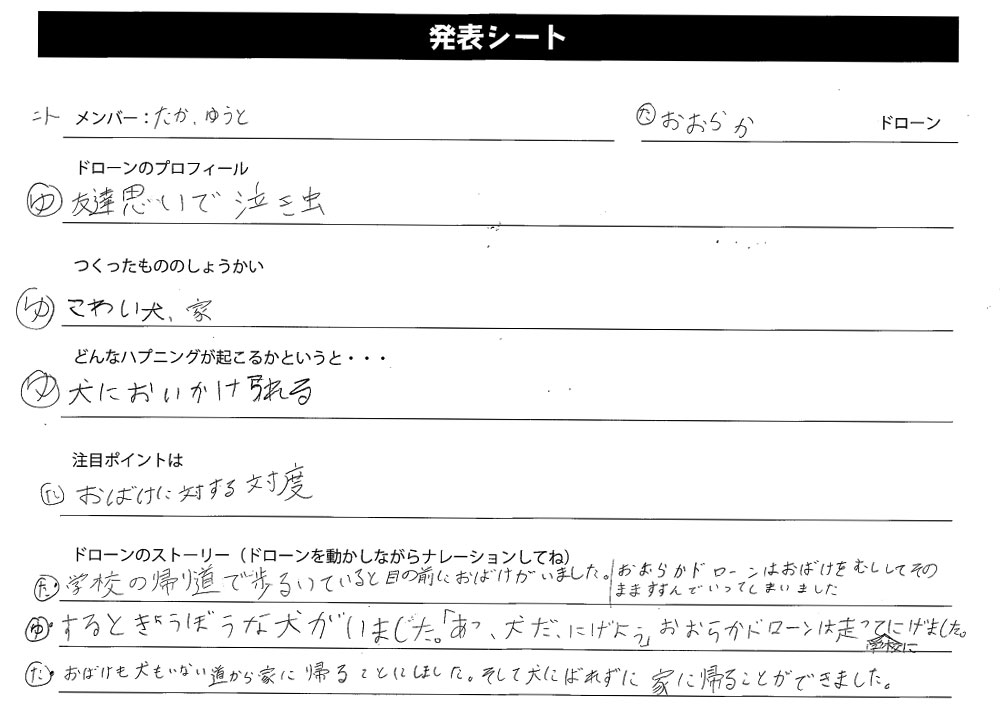 発表シート
ニト メンバー：たか、ゆうと
た おおらか ドローン
ドローンのプロフィール
ゆ 友達思いで泣き虫
つくったもののしょうかい
ゆ こわい犬、家
どんなハプニングが起こるかというと・・・
ゆ 犬においかけられる
注目ポイントは
た おばけに対する対度
ドローンのストーリー（ドローンを動かしながらナレーションしてね）
た・学校の帰り道で歩るいていると目の前におばけがいました。
おおらかドローンはおばけをむししてその
まますすんでいってしまいました
ゆ・するときょうぼうな犬がいました。「あっ、犬だ、にげよう」おおらかドローンは走ってにげました。
学校に
た・おばけも犬もいない道から家に帰ることにしました。そして犬にばれずに家に帰ることができました。